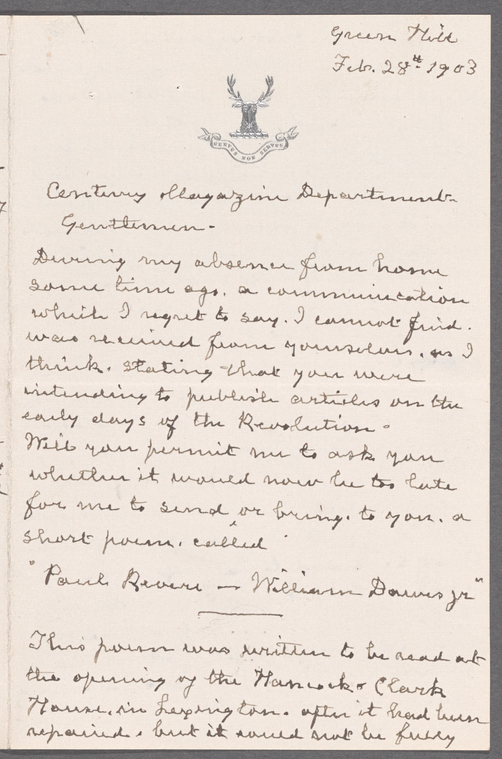 Green Hill
Feb. 28th 1903
SERVUS NON SERVUS
Century Magazine Department.
Gentlemen-
During my absence from home
some time ago, a communication
which I regret to say, I cannot find,
was received from yourselves, as I
think, stating that you were
intending to publish articles on the
early days of the Revolution.
Will you permit me to ask you
whether it would now be too late
for me to send, or bring, to you, a
short poem, called
"Paul Revere — William Dawes jr"
This poem was written to be read at
the opening of the Hancock-Clark
House, in Lexington, after it had been
repaired, but it could not be fully